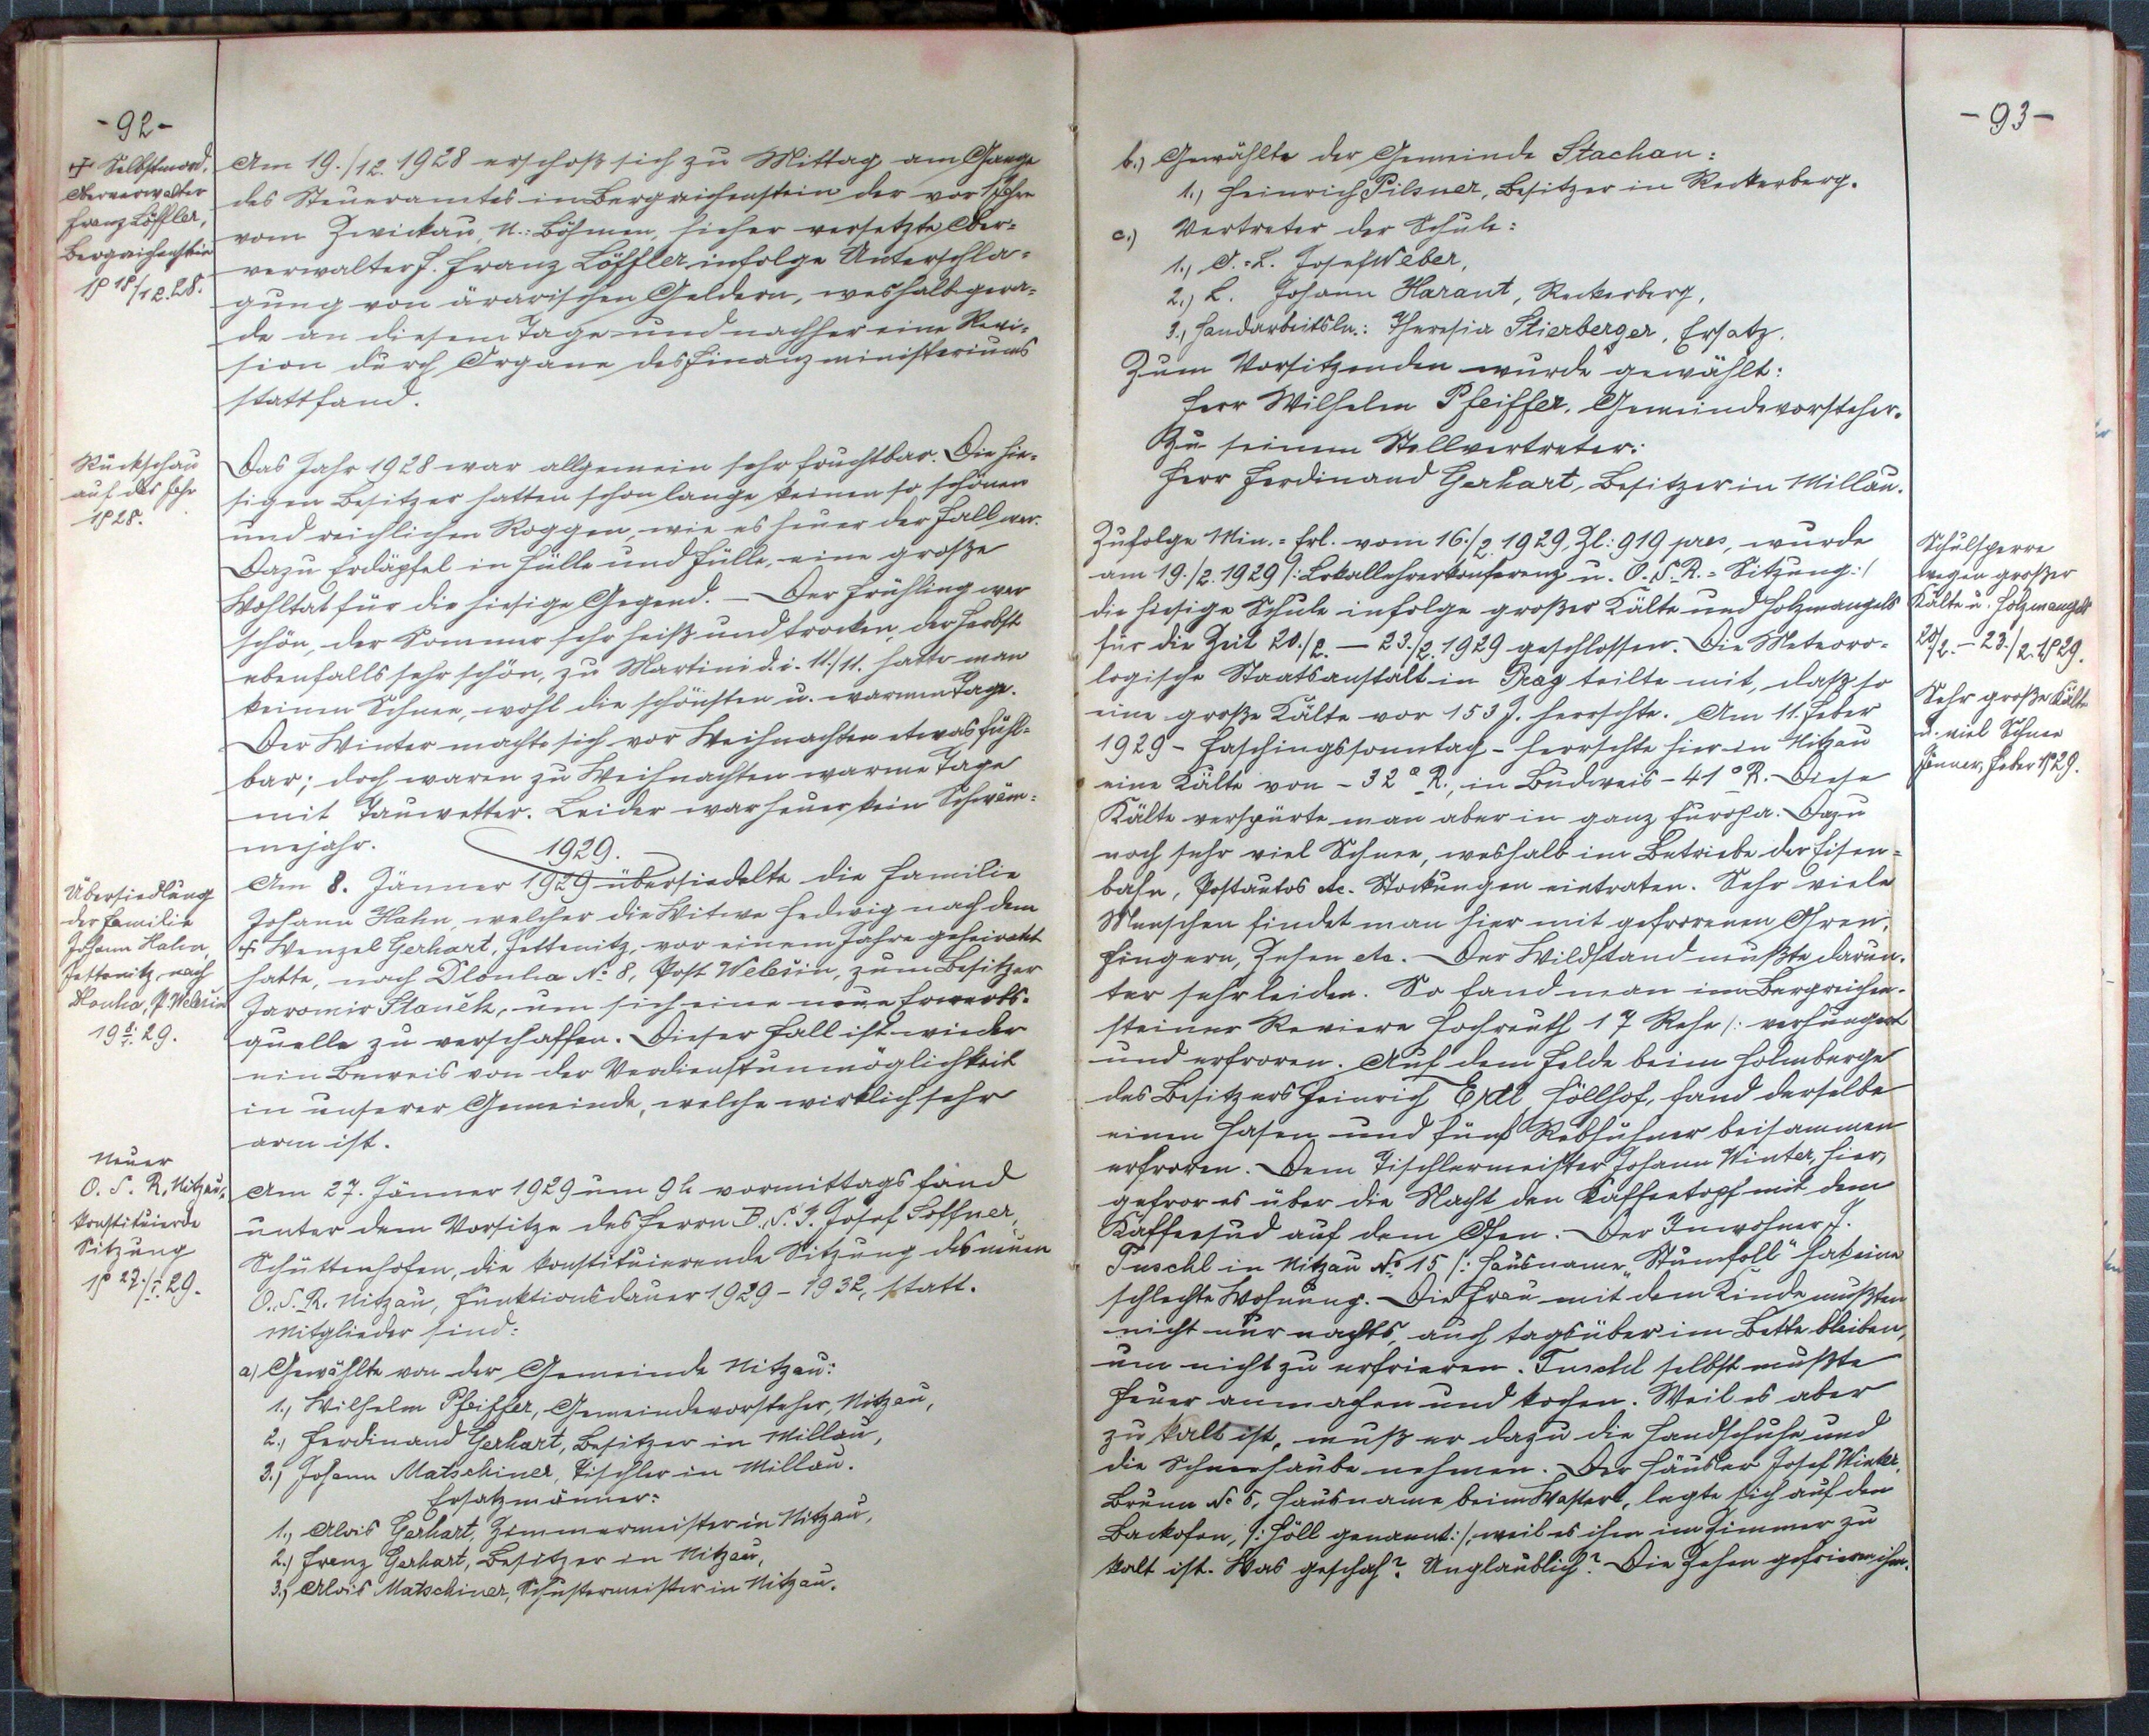 -92-
+ Selbstmord.
Oberverwalter
Franz Löffler,
Bergreichenstein
19 18/12. 28.
Am 19./12. 1928 erschoß sich zu Mittag am Gange
des Steueramtes in Bergreichenstein der vor 1 Jahre
vom Zwickau, N.-Böhmen, hieher versetzte Ober-
verwalter H. Franz Löffler infolge Unterschla-
gung von ärarischen Geldern, weshalb gera-
de an diesem Tage und nachher eine Revi-
sion durch Organe des Finanzministeriums
stattfand.
Rückschau
auf das Jahr
1928.
Das Jahr 1928 war allgemein sehr fruchtbar. Die hie-
sigen Besitzer hatten schon lange keinen so schönen
und reichlichen Roggen, wie es heuer der Fall war.
Dazu Erdäpfel in Hülle und Fülle, eine große
Wohltat für die hiesige Gegend. – Der Frühling war
schön, der Sommer sehr heiß und trocken, der Herbst
ebenfalls sehr schön, zu Martini d. i. 11./11. hatte man
keinen Schnee, wohl die schönsten u. warmen Tage.
Der Winter machte sich vor Weihnachten etwas fühl-
bar; doch waren zu Weihnachten warme Tage
mit Tauwetter. Leider war heuer kein Schwäm-
mejahr.
1929.
Übersiedlung
der Familie
Johann Hahn,
Jettenitz nach
Dlouha, P. Welešin
19 8./1. 29.
Am 8. Jänner 1929 übersiedelte die Familie
Johann Hahn, welcher die Witwe Hedwig nach dem
+ Wenzel Gerhart, Jettenitz, vor einem Jahre geheiratet
hatte, nach Dlouha No 8, Post Welešin, zum Besitzer
Jaromir Staněk, um sich eine neue Erwerbs-
quelle zu verschaffen. Dieser Fall ist wieder
ein Beweis von der Verdienstunmöglichkeit
in unserer Gemeinde, welche wirklich sehr
arm ist.
Neuer
O. S. R. Nitzau,
konstituierde
Sitzung
19 27./1. 29.
Am 27. Jänner 1929 um 9 h vormittags fand
unter dem Vorsitze des Herrn B. S. I. Josef Soffner,
Schüttenhofen, die konstituierende Sitzung des neuen
O. S. R. Nitzau, Funktionsdauer 1929 – 1932, statt.
Mitglieder sind:
a) Gewählte von der Gemeinde Nitzau:
1., Wilhelm Pfeiffer, Gemeindevorsteher, Nitzau,
2., Ferdinand Gerhart, Besitzer in Millau,
3.) Johann Matschiner, Tischler in Millau.
Ersatzmänner:
1., Alois Gerhart, Zimmermeister in Nitzau,
2.) Franz Gerhart, Besitzer in Nitzau,
3.) Alois Matschiner, Schustermeister in Nitzau.
-93-
b.) Gewählte der Gemeinde Stachau:
1., Heinrich Pilsner, Besitzer in Reckerberg.
c.) Vertreter der Schule:
1., O.-L. Josef Weber,
2.) L. Johann Harant, Reckerberg,
3., Handarbeitsln.: Theresia Stierberger, Ersatz.
Zum Vorsitzenden wurde gewählt:
Herr Wilhelm Pfeiffer, Gemeindevorsteher.
Zu seinem Stellvertreter:
Herr Ferdinand Gerhart, Besitzer in Millau.
Zufolge Min.-Erl. vom 16./2. 1929, Zl: 919 pres, wurde
am 19./2. 1929 /: Lokallehrerkonferenz u. O. S. R.-Sitzung:/
die hiesige Schule infolge großer Kälte und Holzmangels
für die Zeit 20./2. – 23./2. 1929 geschlossen. Die Meteoro-
logische Staatsanstalt in Prag teilte mit, daß so
eine große Kälte vor 153 J. herrschte. Am 11. Feber
1929 – Faschingssonntag – herrschte hier in Nitzau
eine Kälte von – 32° R., in Budweis – 41° R. Diese
Kälte verspürte man aber in ganz Europa. Dazu
noch sehr viel Schnee, weshalb im Betriebe der Eisen-
bahn, Postautos etc. Stockungen eintraten. Sehr viele
Menschen findet man hier mit gefrorenen Ohren,
Fingern, Zehen etc. Der Wildstand mußte darun-
ter sehr leiden. So fand man im Bergreichen-
steiner Reviere Hochreuth 17 Rehe /: verhungert
und erfroren. Auf dem Felde beim Holmberge
des Besitzers Heinrich Ertl Höllhof, fand derselbe
einen Hasen und fünf Rebhühner beisammen
erfroren. Dem Tischlermeister Johann Winter, hier,
gefror es über die Nacht den Kaffeetopf mit dem
Kaffeesud auf dem Ofen. Der Inwohner J.
Tuschl in Nitzau No 15 /: Hausname „Stumfoll" hat eine
schlechte Wohnung. Die Frau mit dem Kinde mußten
nicht nur nachts, auch tagsüber im Bette bleiben,
um nicht zu erfrieren. Tuschl selbst mußte
Feuer anmachen und kochen. Weil es aber
zu kalt ist, muß er dazu die Handschuhe und
die Schneehaube nehmen. Der Häusler Josef Winter,
Brunn No 5, Hausname beim Wasterl, legte sich auf den
Backofen, /: Höll genannt:/, weil es ihm im Zimmer zu
kalt ist. Was geschah? Unglaublich? Die Zehen gefrieren ihm.
Schulsperre
wegen großer
Kälte u. Holzmangels
20/2. – 23./2. 1929.
Sehr große Kälte
u. viel Schnee
Jänner, Feber 1929.